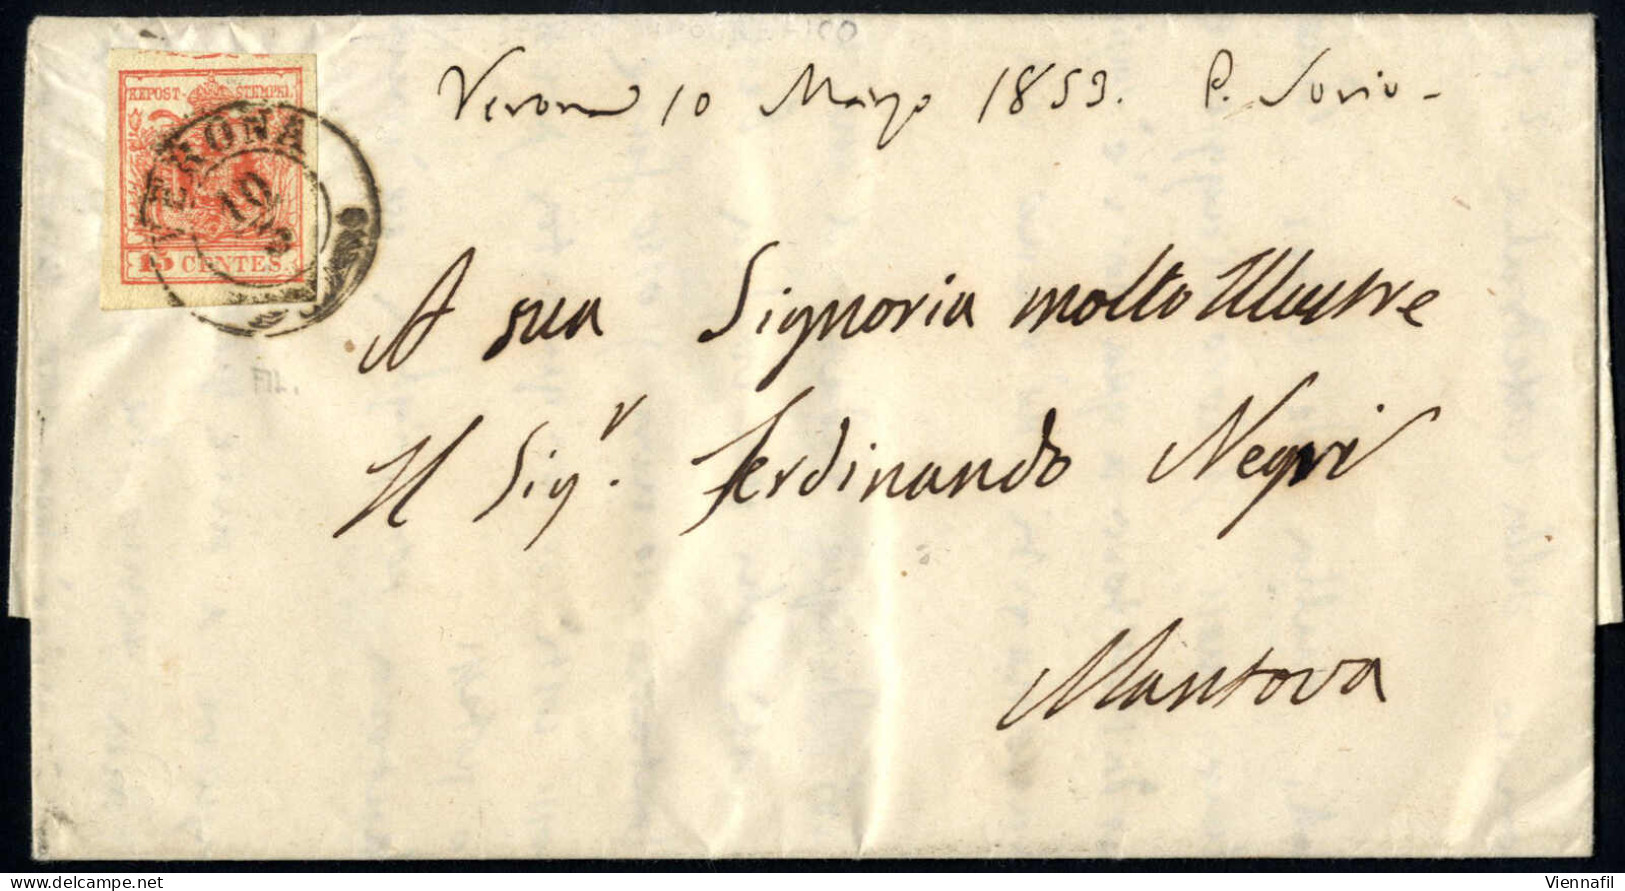 Verona 10 Marzo 1853. P. Jorio -
KKPOST-STEMPEL
VERONA
10
3
15 CENTES.
A sua Signoria molto Illustre
FIL.
Il Sig.r Ferdinando Negri
Mantova
Viennafil